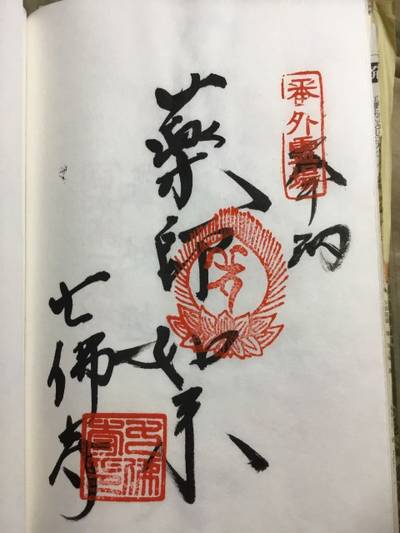 番外霊場
奉納
薬師如来
七佛寺